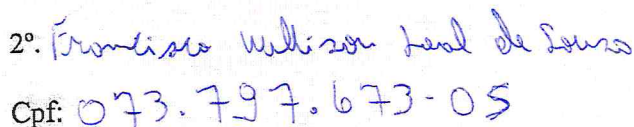 2º. Francisco Wallison Leal de Souza
Cpf: 073.797.673-05